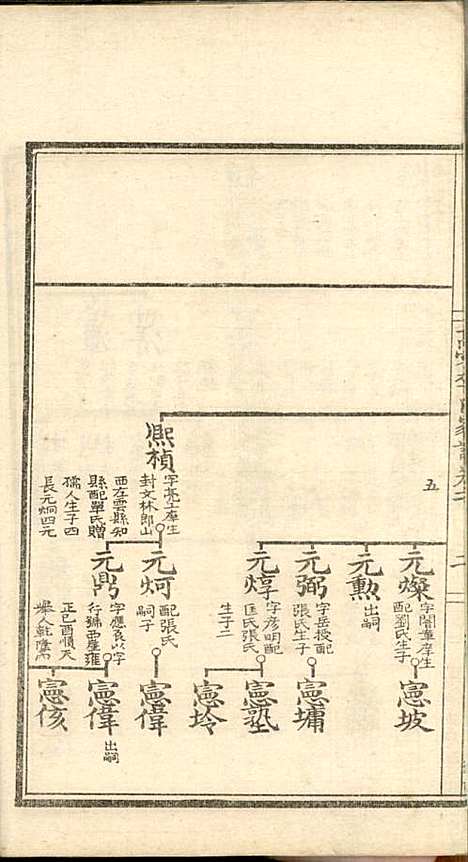 五
二
熙楨
字亮士庠生
封文林郎山
西左雲縣知
縣配單氏贈
孺人生子四
長元炯四元
元燦
字闇華庠生
配劉氏生子
元勲
出嗣
元弼
字岳授配
張氏生子
元焞
字彦明配
匡氏張氏
生子二
元炣
配張氏
嗣子
元鼎
字應良以字
行號西崖雍
正己酉順天
舉人乾隆
憲坡
憲墉
憲塾
憲坽
憲偉
憲偉
出嗣
憲侅